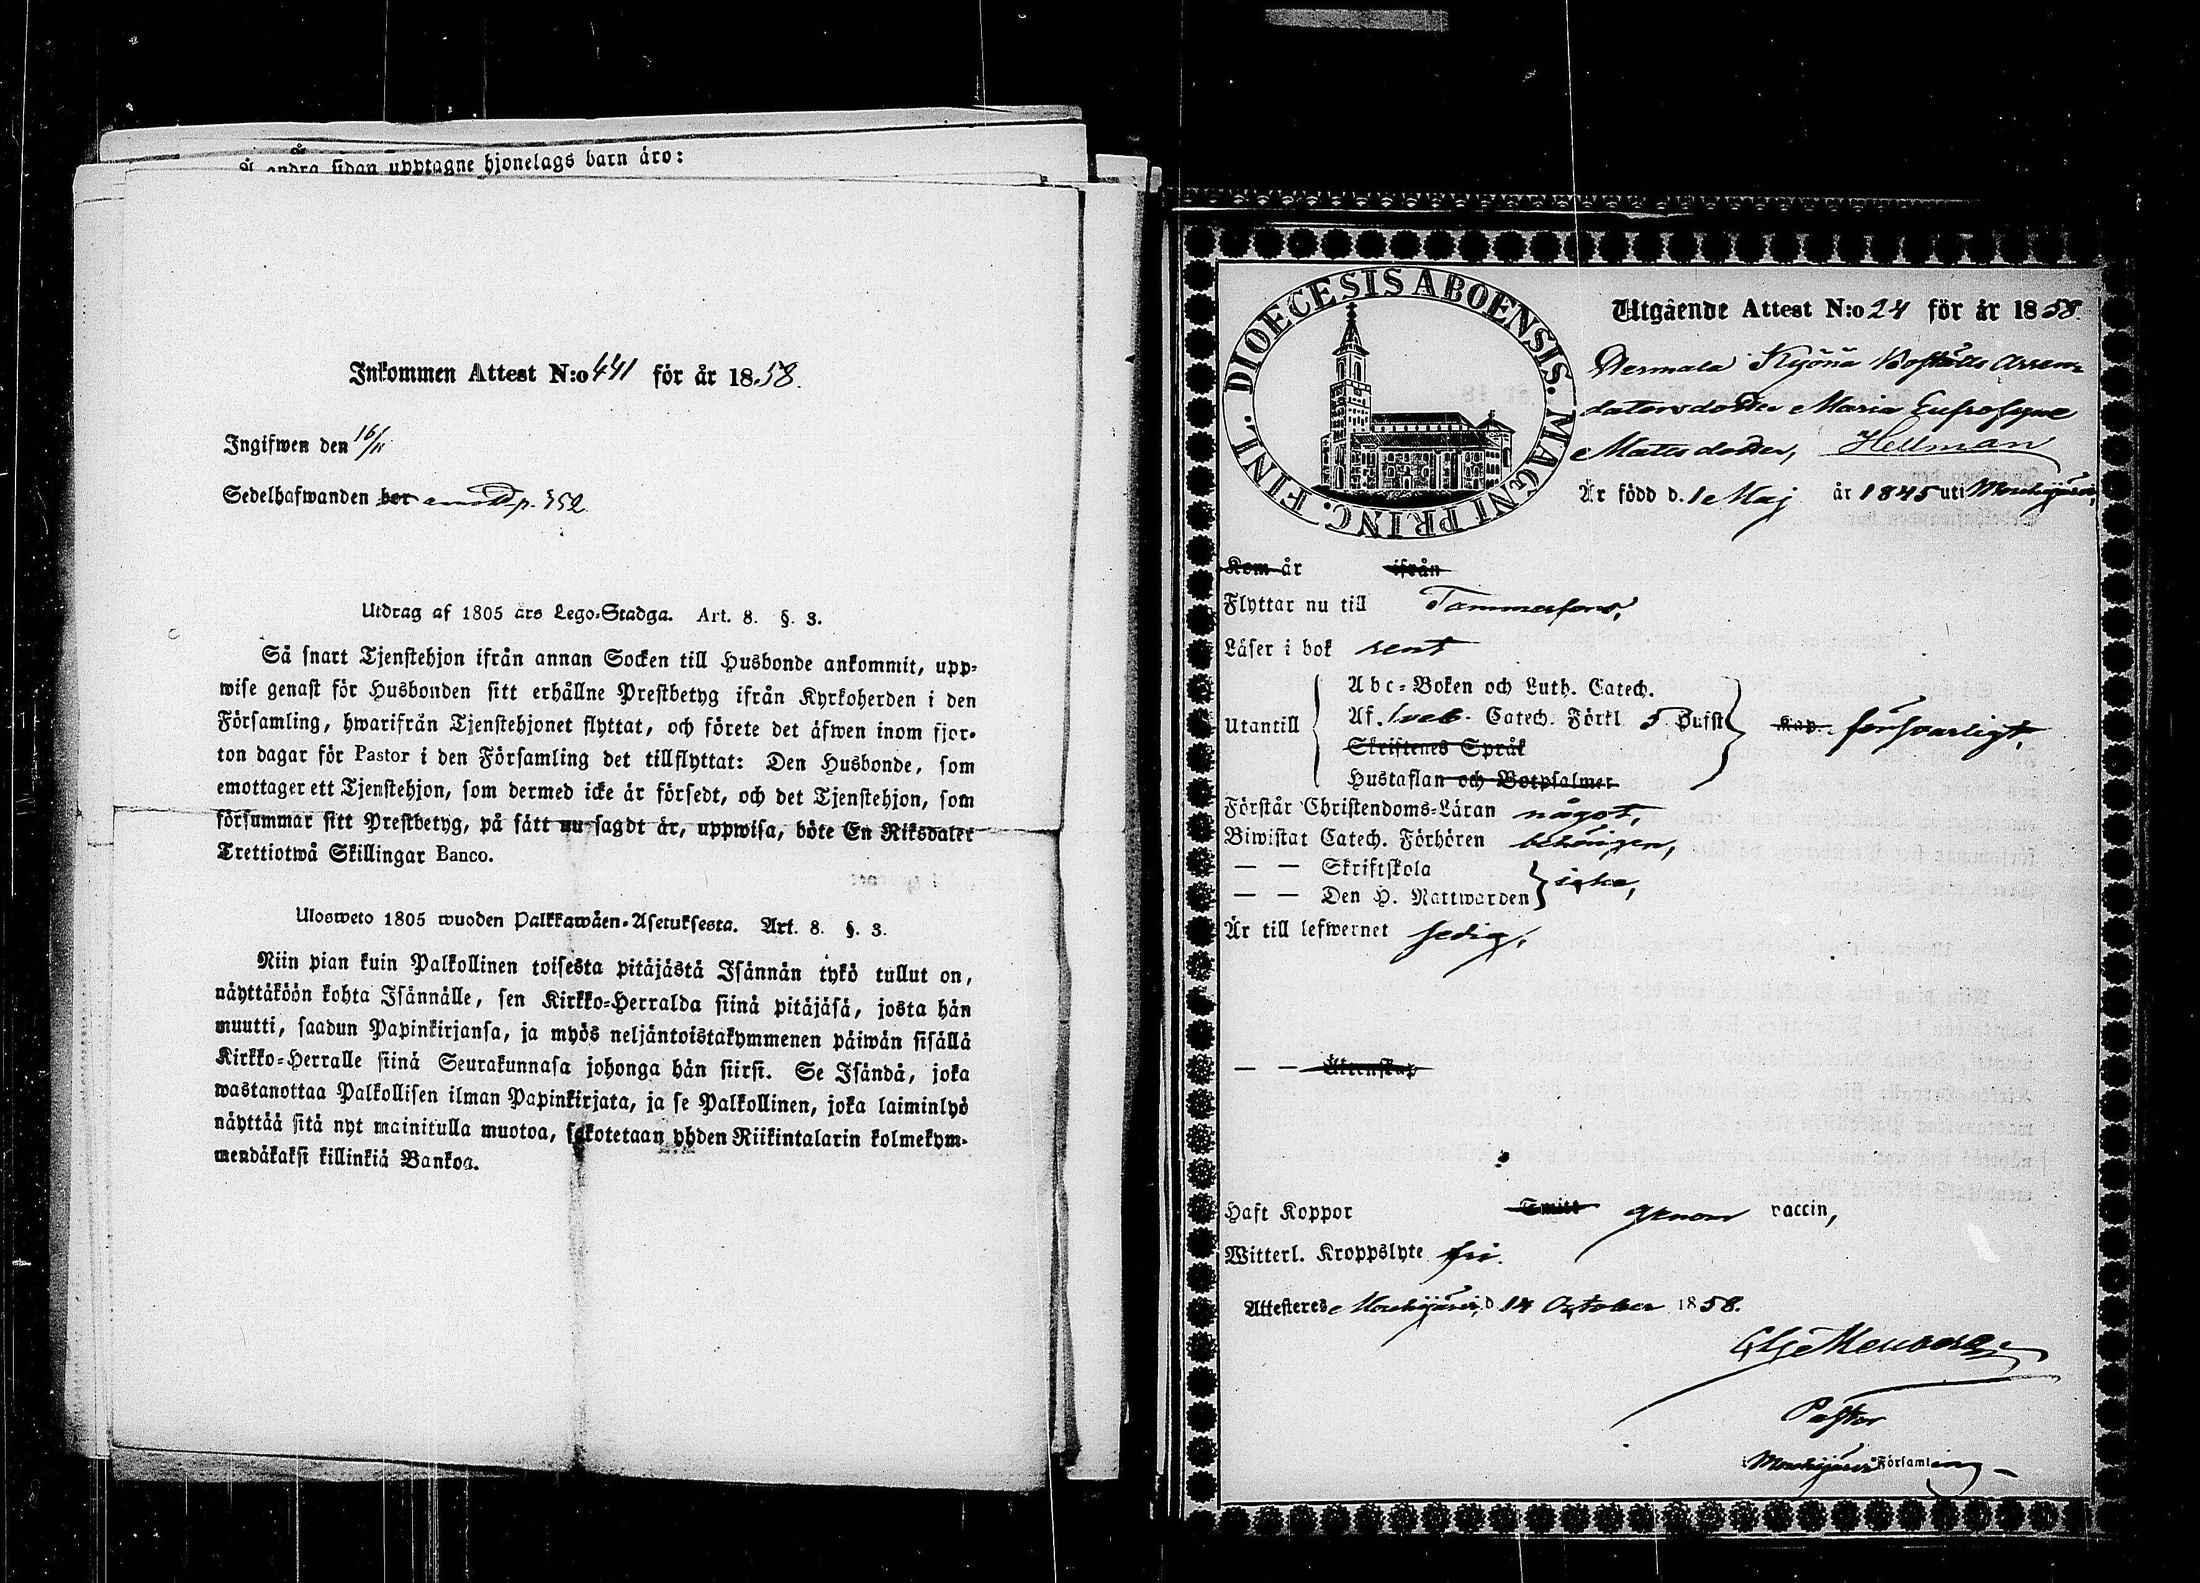 å andra sidan upptagne hjonelags barn äro:
Inkommen Attest N:o 441 för år 1858.
Ingifwen den 16/11
Sedelhafwanden bor p. 352
Utdrag af 1805 års Lego-Stadga. Art. 8. §. 3.
Så snart Tjenstehjon ifrån annan Socken till Husbonde ankommit, upp-
wise genast för Husbonden sitt erhållne Prestbetyg ifrån Kyrkoherden i den
Församling, hwarifrån Tjenstehjonet flyttat, och förete det äfwen inom fjor-
ton dagar för Pastor i den Församling det tillflyttat: Den Husbonde, som
emottager ett Tjenstehjon, som dermed icke är försedt, och det Tjenstehjon, som
försummar sitt Prestbetyg, på sätt nu sagdt är, uppwisa, böte En Riksdaler
Trettiotwå Skillingar Banco.
Ulosweto 1805 wuoden Palkkawäen-Asetuksesta. Art. 8. §. 3.
Niin pian kuin Palkollinen toisesta pitäjästä Isännän tykö tullut on,
näyttäköön kohta Isännälle, sen Kirkko-Herralda siinä pitäjäsä, josta hän
muutti, saadun Papinkirjansa, ja myös neljäntoistakymmenen päiwän sisällä
Kirkko-Herralle siinä Seurakunnasa johonga hän siirsi. Se Isändä, joka
wastanottaa Palkollisen ilman Papinkirjata, ja se Palkollinen, joka laiminlyö
näyttää sitä nyt mainitulla muotoa, sakotetaan yhden Riikintalarin kolmekym-
mendäkaksi killinkiä Bankoa.
DIOECESIS ABOENSIS. MAGNI PRINC. FINL.
Utgående Attest N:o 24 för år 1858.
Boställs Arren-
datorsdotter Maria Eufrosyne
Mattsdotter, Hellman
Är född d. 1 Maj år 1845 uti Mouhijärvi,
Kom år ifrån
Flyttar nu till Tammerfors,
Läser i bok rent
Abc-Boken och Luth. Catech.
Utantill Af. Sveb. Catech. Förkl 5 Hufst Kap. försvarligt,
Skriftenes Språk
Hustaflan och Botpsalmer
Förstår Christendoms-Läran något,
Biwistat Catech. Förhören behörigen,
— — Skriftskola
— — Den H. Nattwarden icke,
Är till lefwernet sedig,
— — Äktenskap
Haft Koppor Smitt genom vaccin,
Witterl. Kroppslyte fri.
Attesteres Mouhijärvi, d 14 October 1858.
Pastor
i Mouhijärvi Församling